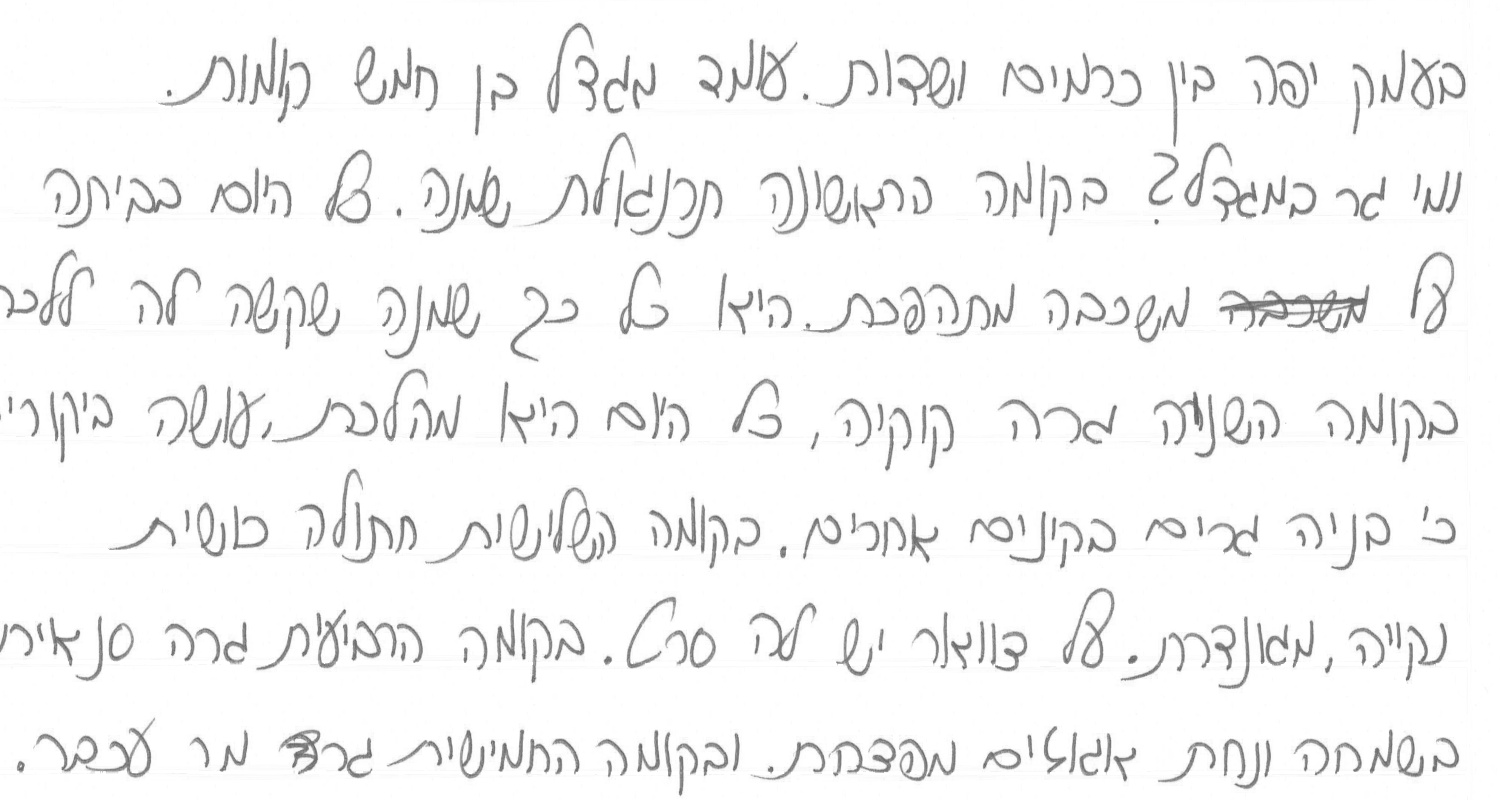 בעמק יפה בין כרמים ושדות. עומד מגדל בן חמש קומות.
ומי גר במגדל? בקומה הראשונה תרנגולת שמנה. כל היום בביתה
על משכבה מתהפכת. היא כל כך שמנה שקשה לה ללכת
בקומה השנייה גרה קוקיה, כל היום היא מהלכת, עושה ביקורי
כי בניה גרים בקינים אחרים. בקומה השלישית חתולה כושית
נקייה, מגונדרת. על צוואר יש לה סרט. בקומה הרביעית גרה סנאית
בשמחה ונחת אגוזים מפצחת. ובקומה החמישית גר מר עכבר.